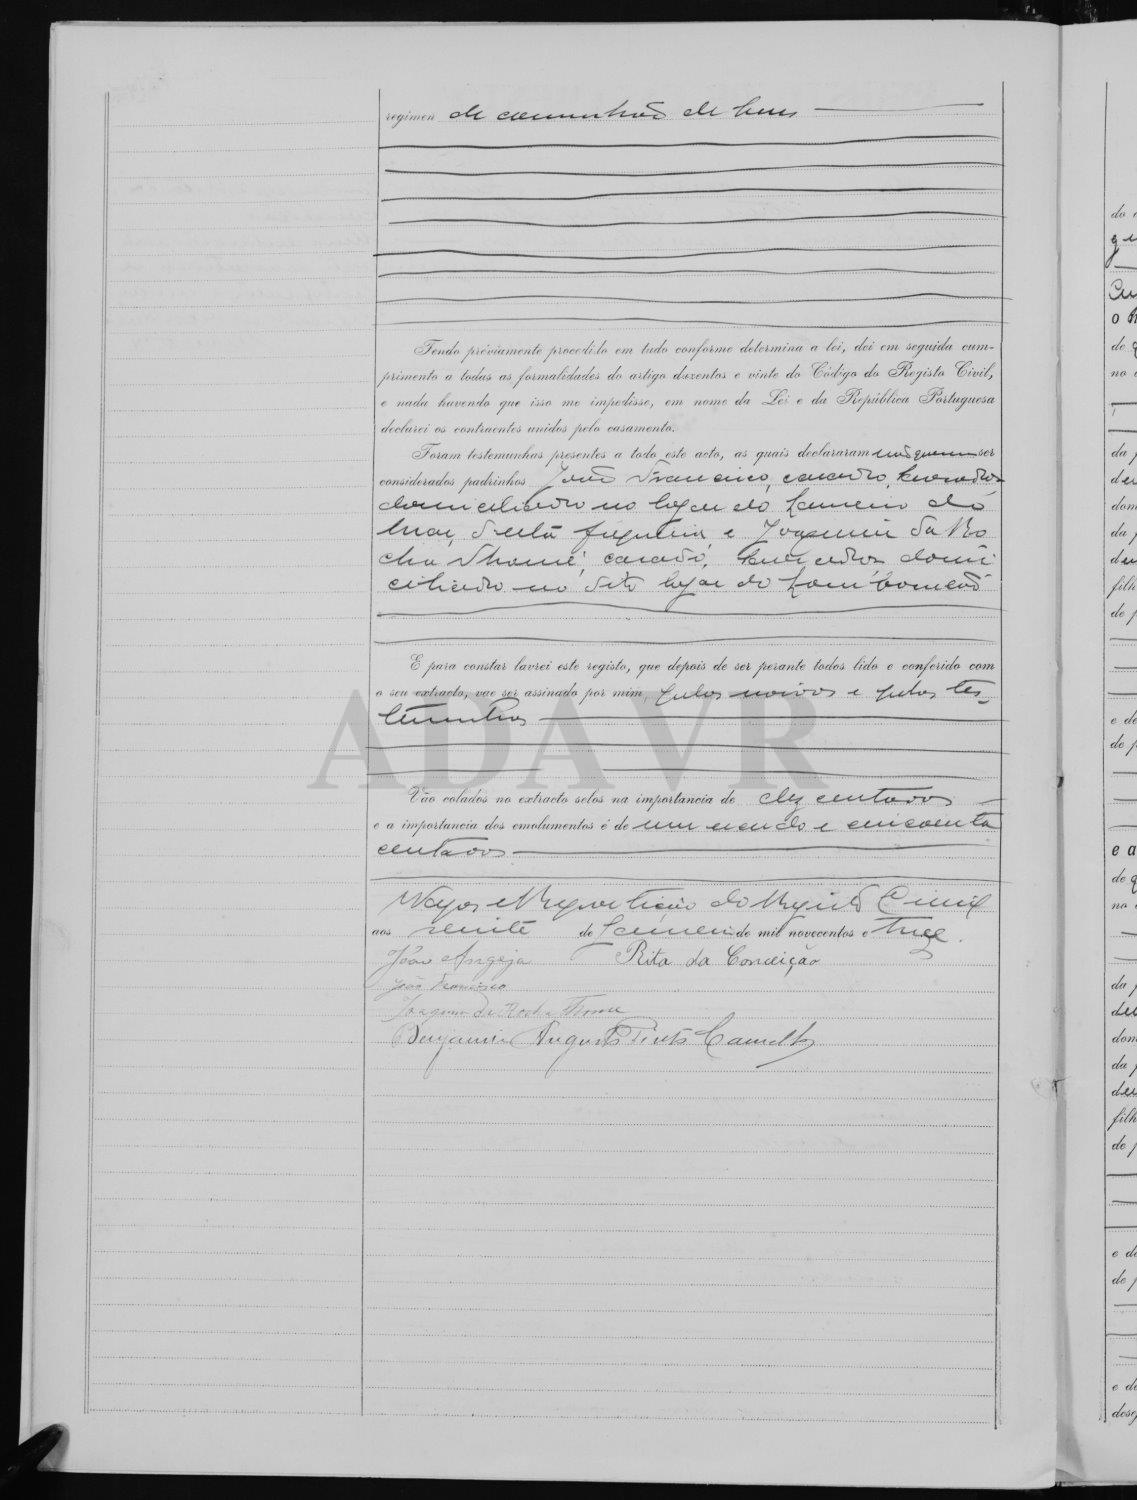 regimen de comunhão de bens
Tendo préviamente procedido em tudo conforme determina a lei, dei em seguida cum-
primento a todas as formalidades do artigo duzentos e vinte do Código do Registo Civil,
e nada havendo que isso me impedisse, em nome da Lei e da República Portuguesa
declarei os contraentes unidos pelo casamento.
Foram testemunhas presentes a todo este acto, as quais declararam não querem ser
considerados padrinhos João Francisco, casado, lavrador
domiciliado no lugar do
desta freguesia e Joaquim da Ro
cha Thomé, casado, lavrador domi
ciliado no dito lugar do
E para constar lavrei este registo, que depois de ser perante todos lido e conferido com
o seu extracto, vae ser assinado por mim, pelos noivos e pelas tes-
temunhas
ADAVR
Vão colados no extracto selos na importancia de dez centavos
e a importancia dos emolumentos é de um escudo e cincoenta
centavos
Vagos e Repartição do Registo Civil
aos de mil novecentos e treze.
João Angeja Rita da Conceição
João Francisco
Joaquim da Rocha Thomé
Benjamin Augusto
do
de
no
da
dom
da
filh
de
e de
de
e a
de
no
da
dom
da
filh
de
e de
de
e de